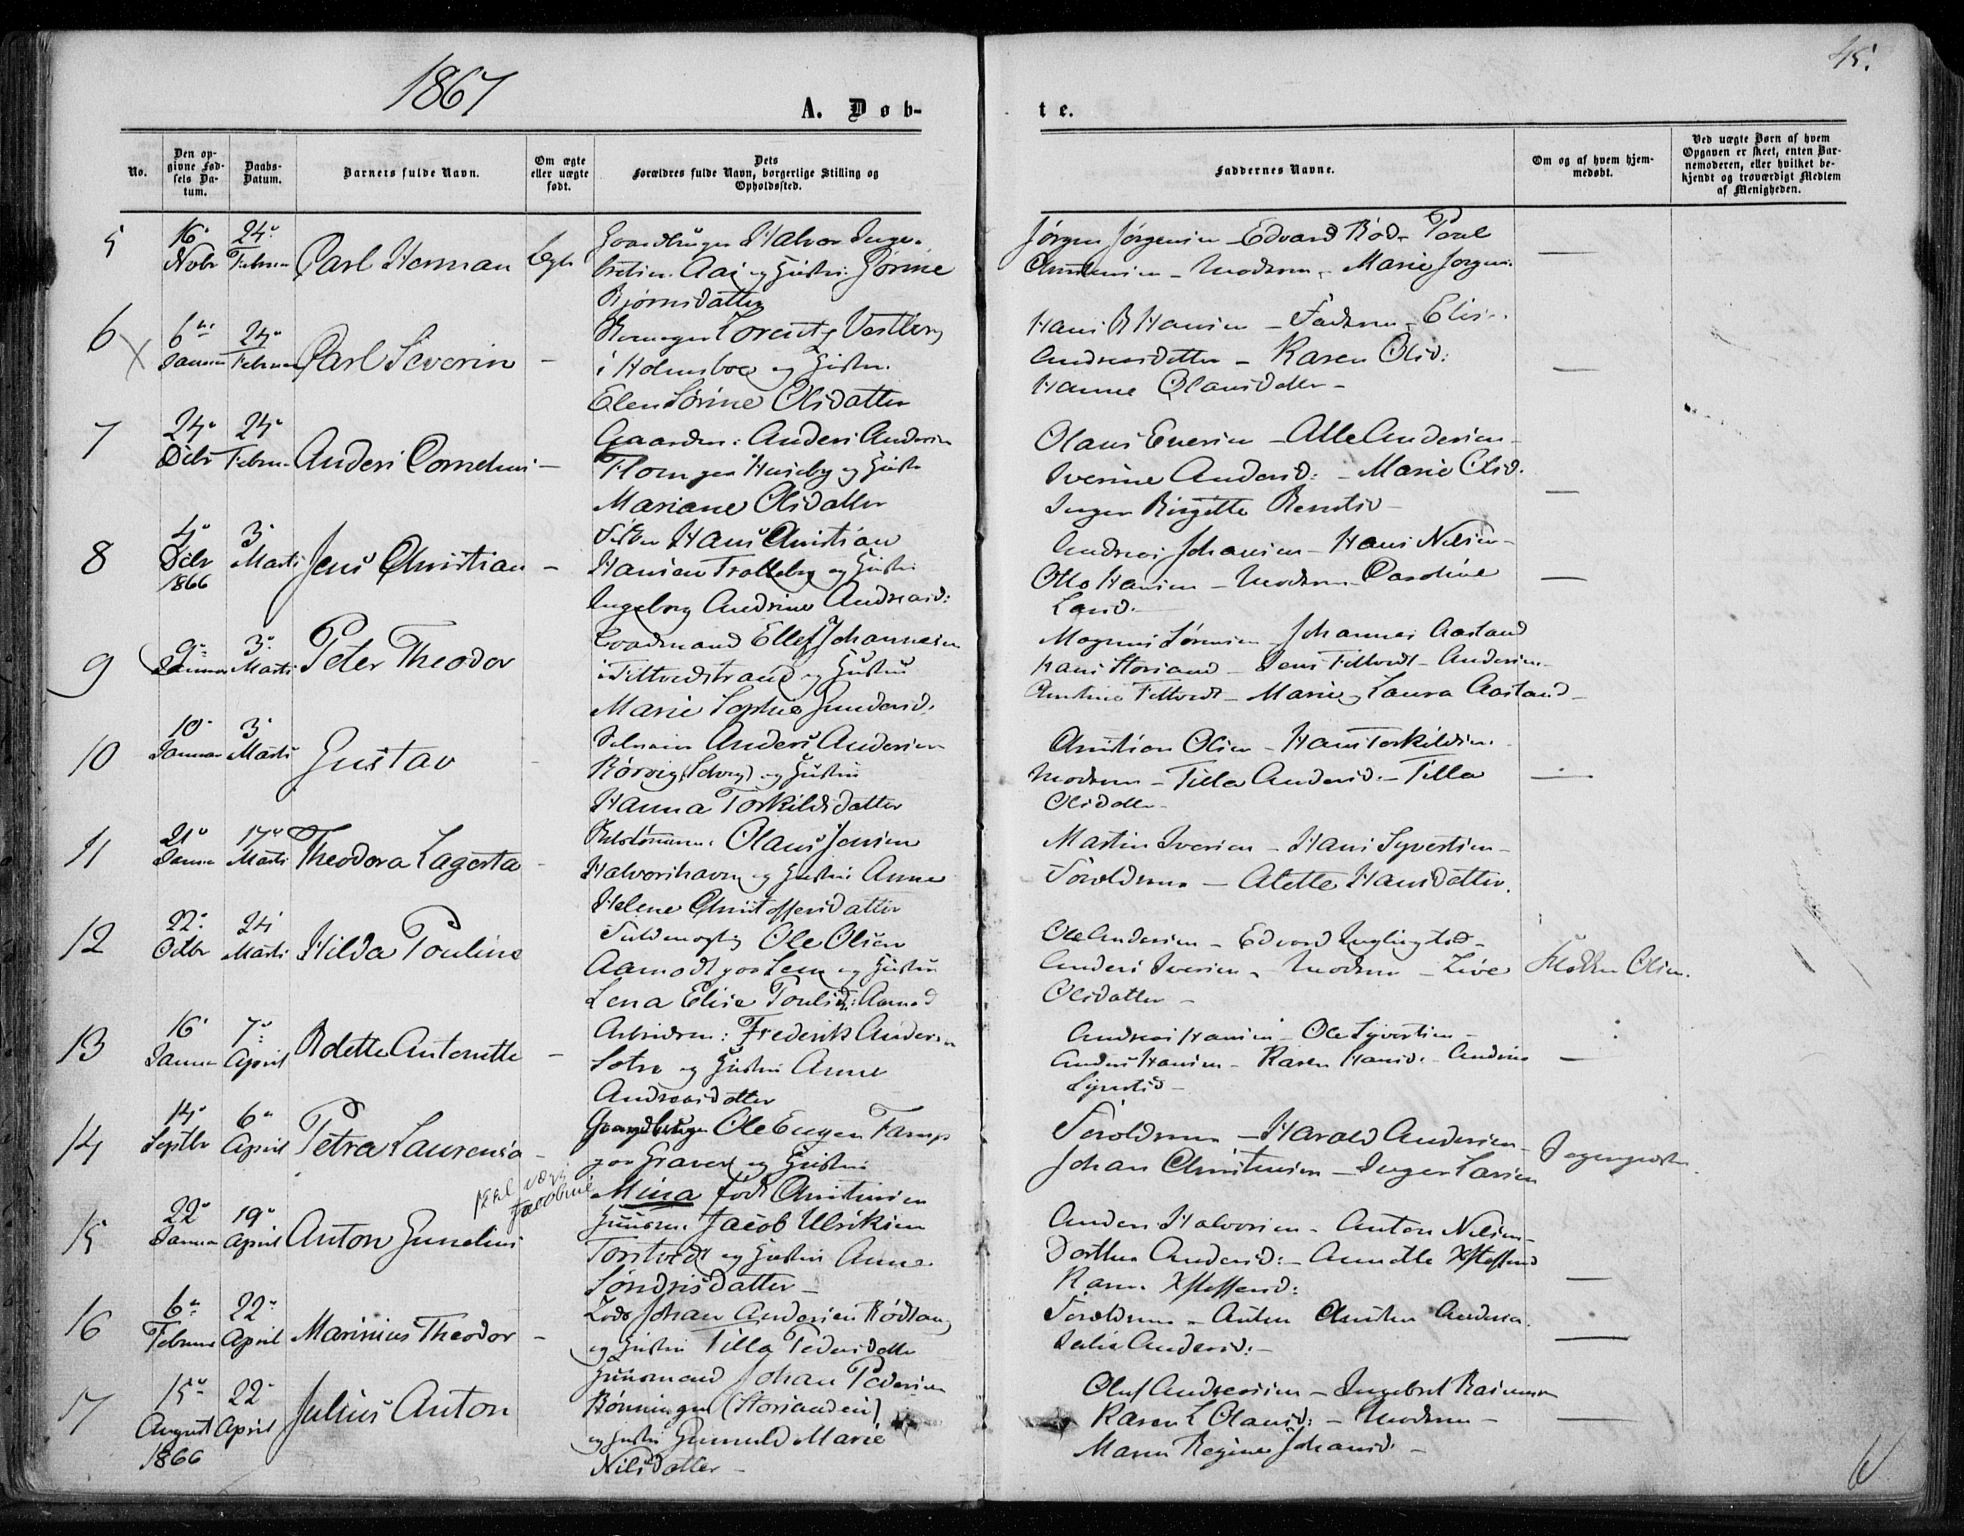 1867
45.
A. Døb-
te.
No.
Den op-
givne Fød-
sels Da-
tum.
Daabs-
Datum.
Barnets fulde Navn.
Om ægte
eller uægte
født.
Dets
Forældres fulde Navn, borgerlige Stilling og
Opholdssted.
Faddernes Navne.
Om og af hvem hjem-
medøbt.
Ved uægte Børn af hvem
Opgaven er skeet, enten Bar-
nemoderen, eller hvilket be-
kjendt og troværdigt Medlem
af Menigheden.
5
16
Nobr
24
Februar
Carl Herman
Halvor Inge-
bretsen og Hustru Jørine
Bjørnsdatter
Jørgen Jørgensen – Edvard Rød – Poul
Christensen – Moderen – Marie Jørgens.
6
6
Januar
24
Februar
Carl Severin
Lorentz Vestberg
i Holmsboe og Hustru
Elen Sørine Olsdatter
Hans B Hansen – Faderen – Elis.
Andreasdatter – Karen Olsd:
Hanne Olausdatter –
7
24
Debr
24
Februar
Anders Cornelius –
Gaardbr: Anders Andersen
Huseby og Hustru
Mariane Olsdatter
Olaus Eversen – Alle Andersen –
Iverine Andersd: – Marie Olsd.
Inger Birgitte
8
4
Debr
1866
3
Marts
Jens Christian –
Hans Christian
Hansen Trolleborg og Hustru
Ingeborg Andrine Andreasd:
Andreas Johansen – Hans Nilsen –
Otto Hansen – Moderen – Caroline
Land.
9
9
Januar
3
Marts
Peter Theodor
Ellef Johannesen
i Filtvedtstrand og Hustru
Marie Sophie Gundersd.
Magnus Sørensen – Johannes Aastand
Hans Storsand – Jens Filtvedt – Andersen
Christine Filtvedt – Marie og Laura Aastand –
10
10
Januar
3
Marts
Gustav
Selveier Anders Andersen
Rørvig og Hustru
Hanna Torkildsdatter
Christian Olsen – Hans Torkildsen
Moderen – Tilla Andersd. – Tilla
Olsdatter –
11
21
Januar
17
Marts
Theodora Lagerta
Olaus Jensen
Halvorshavn og Hustru Anne
Helene Christoffersdatter
Martin Iversen – Hans Syvertsen –
Forældrene – Alette Hansdatter.
12
22
Octbr
24
Marts
Hilda Pouline
Fuldmægtig Ole Olsen
Aamodt paa Lem og Hustru
Lena Elise Poulsd: Aamod
Ole Andersen – Edvard Inglingstad –
Anders Iversen – Moderen – Live
Olsdatter –
Klokker Olsen.
13
16
Januar
7
April
Bolette Antonette –
Arbeidsm: Frederik Andersen
Sotre og Hustru Anne
Andreasdatter
Andreas Hansen – Ole Syvertsen –
Anders Hansen – Karen Hansd. – Andrine
Syvertsd –
14
14
Septbr
6
April
Petra Laurensia –
skal være
Jacobine
Gaardbruger Ole Eugen Famp
paa Graver og Hustru
Mina født Christensen
Forældrene – Harald Andersen –
Johan Christensen – Inger Larsen
Sognepræsten
15
22
Januar
19
April
Anton Gunelius
Huusm. Jacob Ulriksen
Torstvedt og Hustru Anne
Søndrisdatter –
Anders Halvorsen – Anton Nilsen –
Dorthea Andersd: – Annette Xstoffersd
Karen Xstoffersd:
16
6
Februar
22
April
Marinius Theodor –
Lods Johan Andersen Rødtang
og Hustru Tilla Pedersdatter
Forældrene – Anton Christen Andersen
Julie Andersd: –
17
15
August
1866
22
April
Julius Anton
Huusmand Johan Pedersen
Rønningen (Storsanden)
og Hustru Gunnild Marie
Nilsdatter –
Oluf Andreasen – Ingebret Rasmussen
Karen L Olausd: – Moderen –
Maren Regine Johansd. –